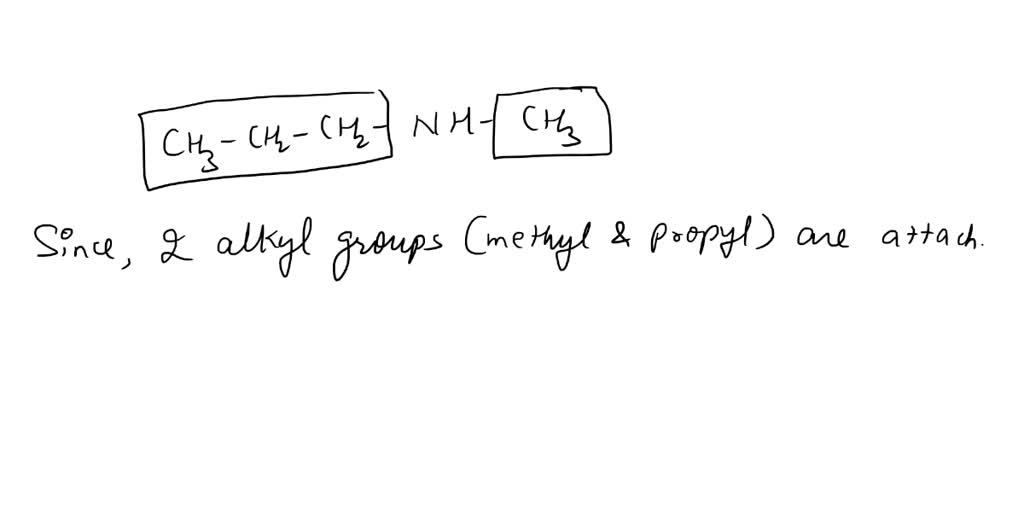 CH₃ – CH₂ – CH₂ – NH – CH₃
Since, 2 alkyl groups (methyl & propyl) are attach.